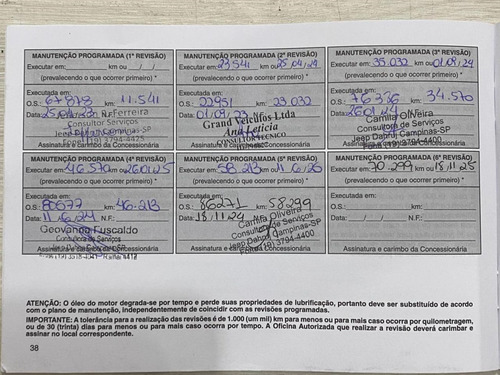 MANUTENÇÃO PROGRAMADA (1ª REVISÃO)
Executar em: km ou / /
(prevalecendo o que ocorrer primeiro) *
Executada em:
O.S.: 67878 km: 11.541
Data: N.F.: Ferreira
Consultor Serviços
Jeep Dahruj Campinas-SP
Assinatura e carimbo da Concessionária
MANUTENÇÃO PROGRAMADA (2ª REVISÃO)
Executar em: 23.541 km ou 25/04/24
(prevalecendo o que ocorrer primeiro) *
Executada em:
O.S.: 22951 km: 23.032
Data: 01/09/23
Grand Veículos Ltda
Ana Letícia
CONSULTOR TÉCNICO
MANUTENÇÃO PROGRAMADA (3ª REVISÃO)
Executar em: 35.032 km ou 01/09/24
(prevalecendo o que ocorrer primeiro) *
Executada em:
O.S.: 76386 km: 34.570
Data: 26/01/24
Camila Oliveira
Consultora de Serviços
Jeep Dahruj Campinas-SP
Fone: (19) 3794-4400
Assinatura e carimbo da Concessionária
MANUTENÇÃO PROGRAMADA (4ª REVISÃO)
Executar em: 46.570 km ou 26/01/25
(prevalecendo o que ocorrer primeiro) *
Executada em:
O.S.: 80577 km: 46.213
Data: 11/6/24 N.F.:
Geovanna Fuscaldo
Consultora de Serviços
Jeep Dahruj Campinas-SP
Assinatura e carimbo da Concessionária
MANUTENÇÃO PROGRAMADA (5ª REVISÃO)
Executar em: 58.213 km ou 11/6/25
(prevalecendo o que ocorrer primeiro) *
Executada em:
O.S.: 86271 km: 58299
Data: 18/11/24 N.F.:
Camila Oliveira
Consultora de Serviços
Jeep Dahruj Campinas-SP
Fone: (19) 3794-4400
Assinatura e carimbo da Concessionária
MANUTENÇÃO PROGRAMADA (6ª REVISÃO)
Executar em: 70.299 km ou 18/11/25
(prevalecendo o que ocorrer primeiro) *
Executada em:
O.S.: km:
Data: / / N.F.:
Assinatura e carimbo da Concessionária
ATENÇÃO: O óleo do motor degrada-se por tempo e perde suas propriedades de lubrificação, portanto deve ser substituído de acordo
com o plano de manutenção, independentemente de coincidir com as revisões programadas.
IMPORTANTE: A tolerância para a realização das revisões é de 1.000 (um mil) km para menos ou para mais caso ocorra por quilometragem,
ou de 30 (trinta) dias para menos ou para mais caso ocorra por tempo. A Oficina Autorizada que realizar a revisão deverá carimbar e
assinar no local correspondente.
38